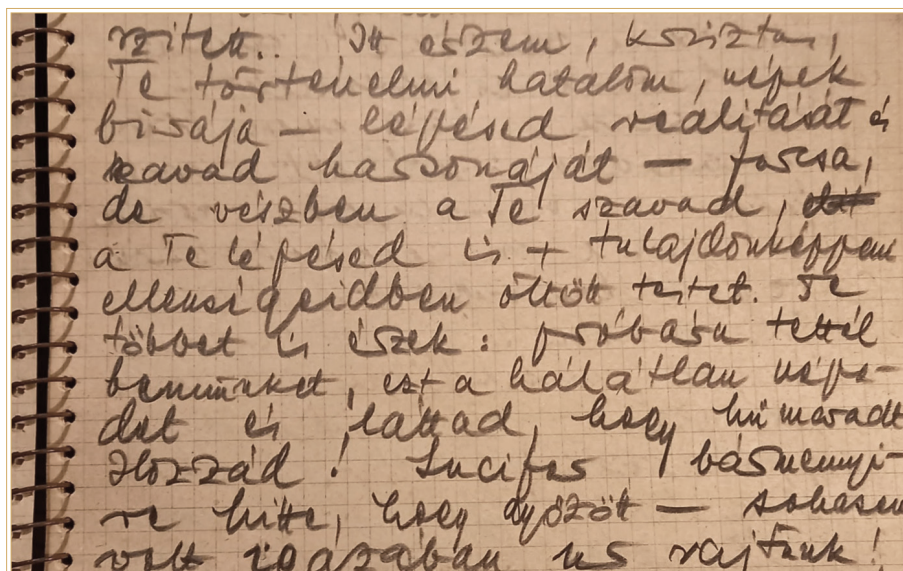 szitett.. Itt érzem, Krisztus,
Te történelmi hatalom, népek
birája — lépésed realitását és
szavad harsonáját — furcsa,
de részben a Te szavad,
a Te lépésed is + tulajdonképpen
ellenségeidben öltött testet. Te
többet is érzek: próbára tettél
bennünket, ezt a hálátlan népe-
det és láttad, hogy hű maradt
Hozzád! Lucifer bármennyi-
re hitte, hogy győzött — sohasem
volt igazában úr rajtunk!